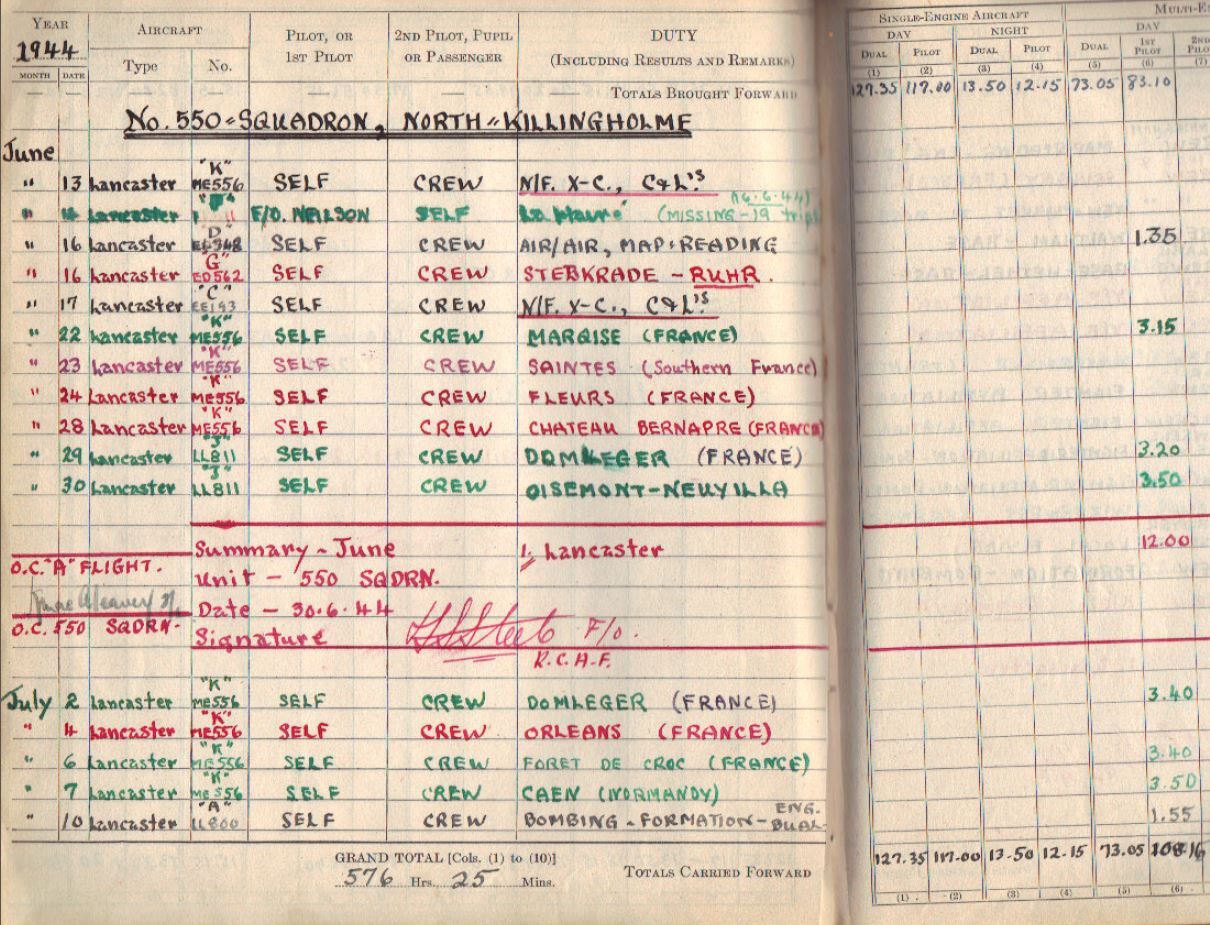 YEAR AIRCRAFT PILOT, OR 1ST PILOT 2ND PILOT, PUPIL OR PASSENGER DUTY (INCLUDING RESULTS AND REMARKS) SINGLE-ENGINE AIRCRAFT
1944 DAY NIGHT DAY
MONTH DATE Type No. DUAL PILOT DUAL PILOT DUAL 1ST PILOT
(1) (2) (3) (4) (5) (6) (7)
TOTALS BROUGHT FORWARD 127.35 117.00 13.50 12.15 73.05 83.10
No. 550 SQUADRON, NORTH KILLINGHOLME
June
" 13 Lancaster "K" ME556 SELF CREW N/F. X-C., C&L'S
" 14 Lancaster F/O. NEILSON SELF Le Havre (MISSING-19 trips
" 16 Lancaster "D" SELF CREW AIR/AIR, MAP-READING 1.35
" 16 Lancaster "G" ED562 SELF CREW STERKRADE - RUHR.
" 17 Lancaster "C" EE193 SELF CREW N/F. X-C., C&L'S
" 22 Lancaster "K" ME556 SELF CREW MARQISE (FRANCE) 3.15
" 23 Lancaster "K" ME556 SELF CREW SAINTES (Southern France)
" 24 Lancaster "K" ME556 SELF CREW FLEURS (FRANCE)
" 28 Lancaster "K" ME556 SELF CREW CHATEAU BERNAPRE (FRANCE)
" 29 Lancaster "J" LL811 SELF CREW DOMLEGER (FRANCE) 3.20
" 30 Lancaster "J" LL811 SELF CREW OISEMONT-NEUVILLA 3.50
Summary - June 1. Lancaster 12.00
O.C. "A" FLIGHT. Unit - 550 SQDRN.
Date - 30.6.44
O.C. 550 SQDRN. Signature F/O.
R.C.A.F.
July 2 Lancaster "K" ME556 SELF CREW DOMLEGER (FRANCE) 3.40
" 4 Lancaster "K" ME556 SELF CREW ORLEANS (FRANCE)
" 6 Lancaster "K" ME556 SELF CREW FORET DE CROC (FRANCE) 3.40
" 7 Lancaster "K" ME556 SELF CREW CAEN (NORMANDY) 3.50
" 10 Lancaster "A" LL800 SELF CREW BOMBING - FORMATION - ENG. DUAL- 1.55
GRAND TOTAL [Cols. (1) to (10)]
576 Hrs. 25 Mins. TOTALS CARRIED FORWARD 127.35 117.00 13.50 12.15 73.05
(1) (2) (3) (4) (5) (6)